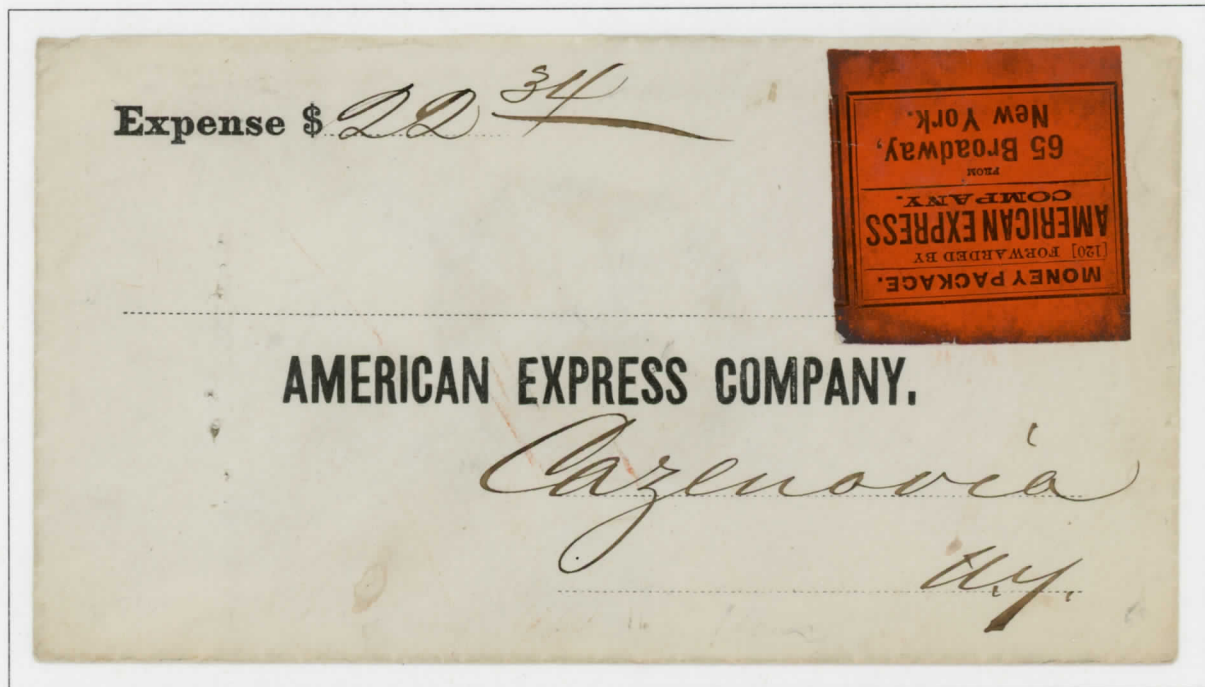 Expense $ 22 34
MONEY PACKAGE.
[120] FORWARDED BY
AMERICAN EXPRESS
COMPANY.
FROM
65 Broadway,
New York.
AMERICAN EXPRESS COMPANY.
Cazenovia
N.Y.